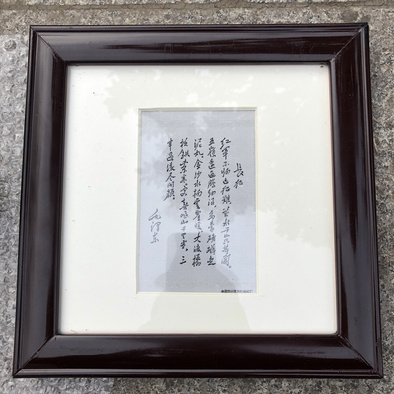 長征
红軍不怕远征難，萬水千山只等閒。
五嶺逶迤騰細浪，烏蒙磅礴走
泥丸。金沙水拍雲崖暖，大渡橋
横鐵索寒。更喜岷山千里雪，三
軍過後盡開顏。
毛澤东